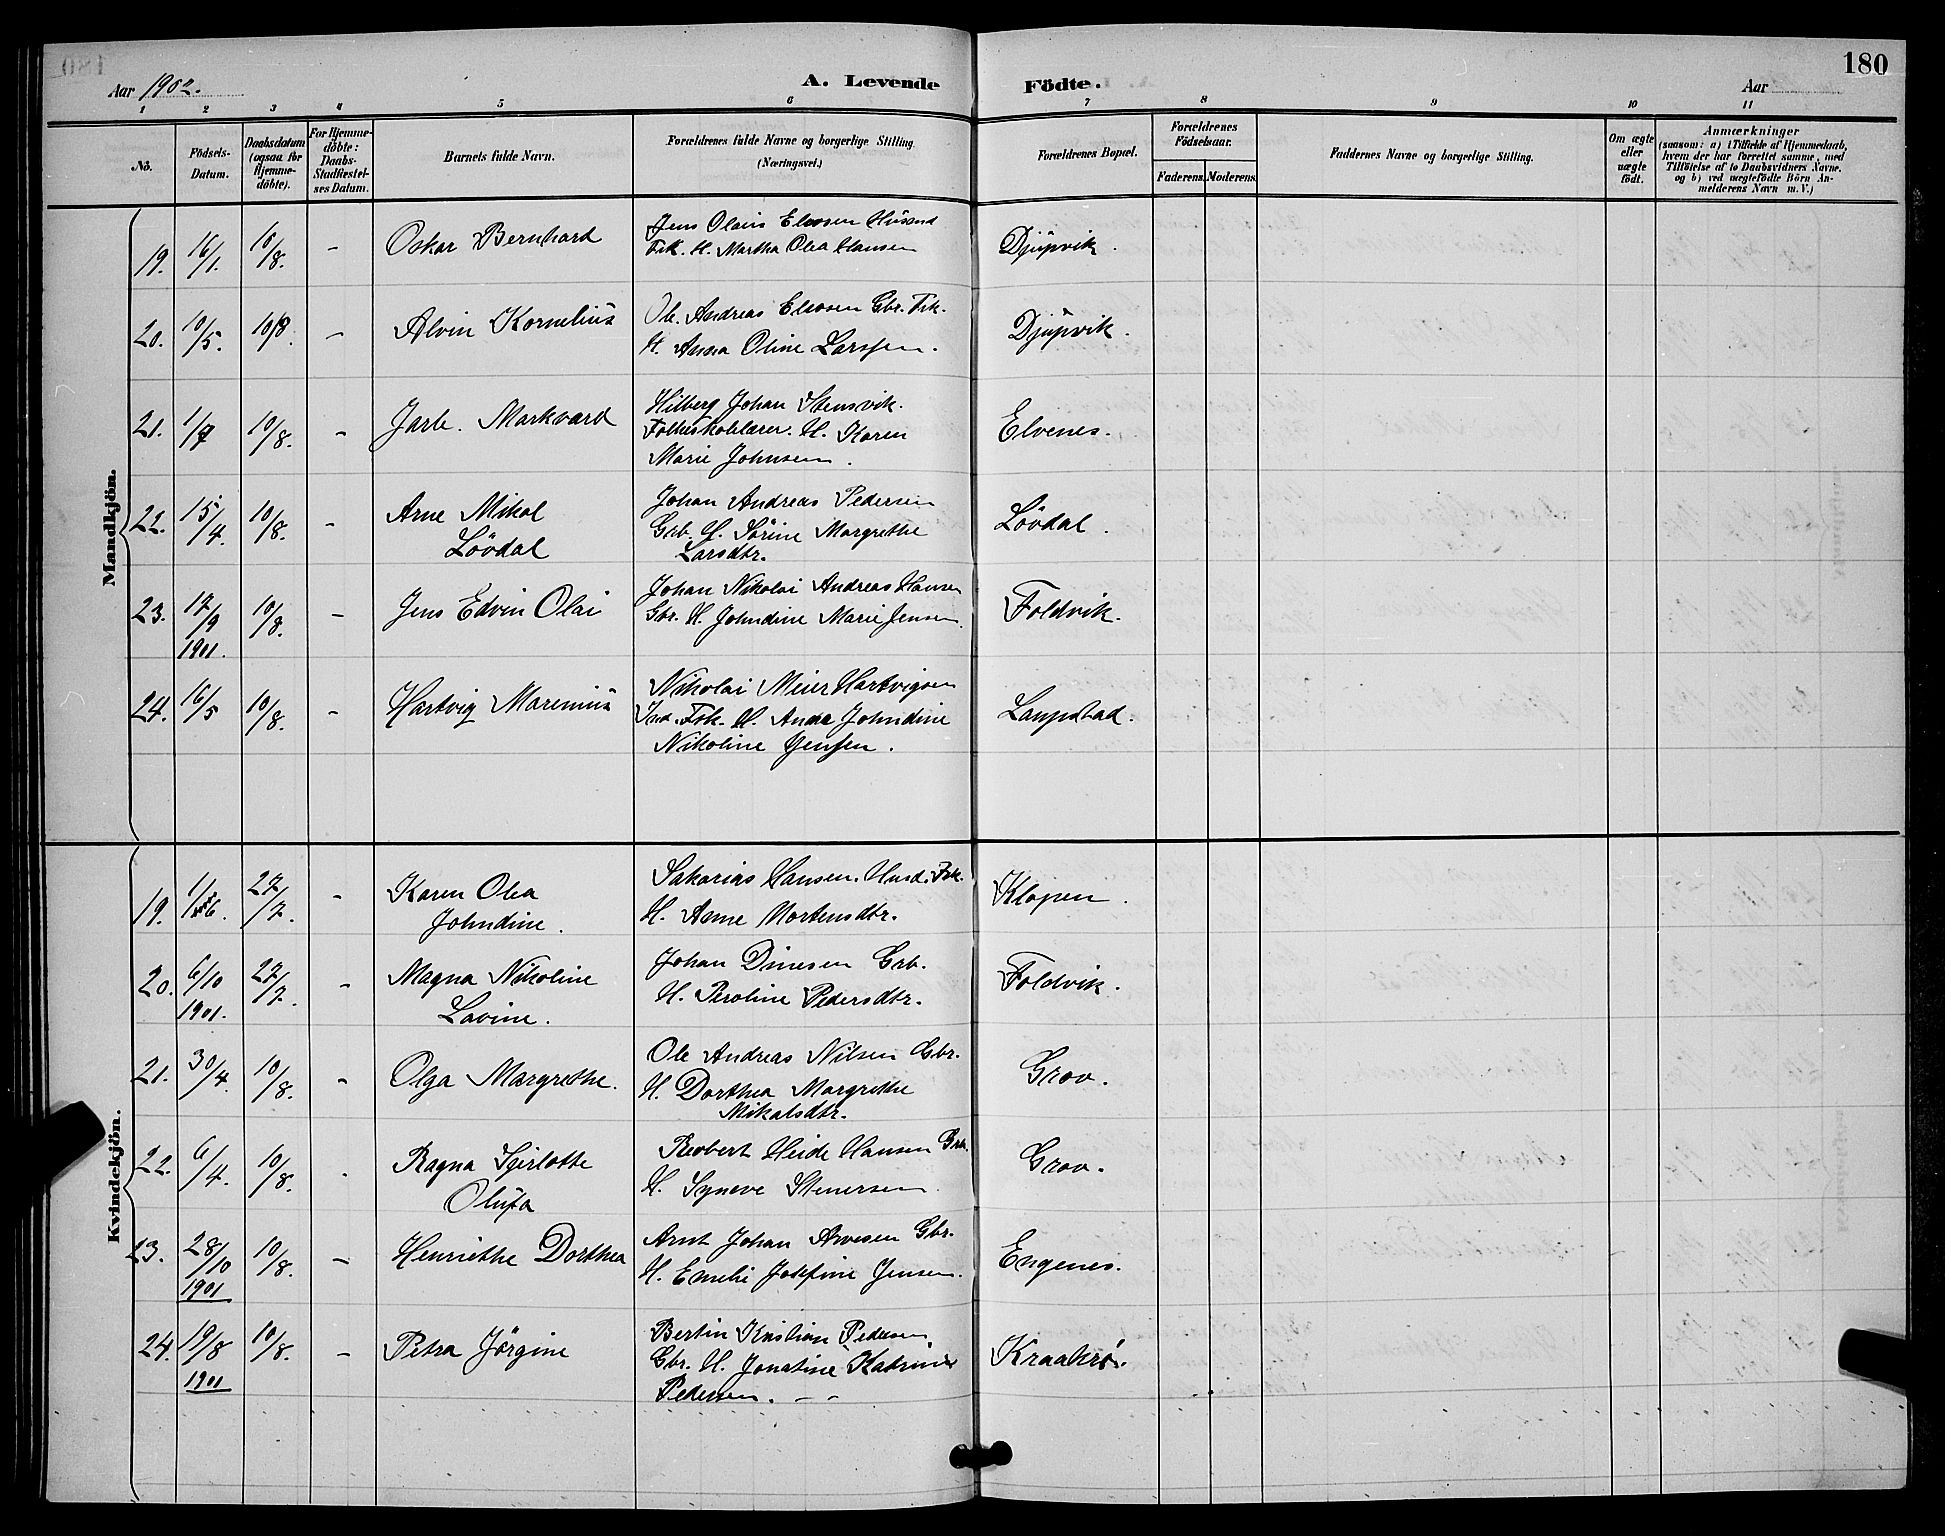 180
Aar 1902.
A. Levende Födte.
Aar
1 2 3 4 5 6 7 8 9 10 11
No. Födsels-Datum. Daabsdatum (ogsaa for Hjemme-döbte). For Hjemme-döbte: Daabs-Stadfæstel-ses Datum. Barnets fulde Navn. Forældrenes fulde Navne og borgerlige Stilling. (Næringsvei.) Forældrenes Bopæl. Forældrenes Födselsaar. Faderens. Moderens. Faddernes Navne og borgerlige Stilling. Om ægte eller uægte födt. Anmærkninger (saasom: a) i Tilfælde af Hjemmedaab, hvem der har forrettet samme, med Tilföielse af to Daabsvidners Navne, og b) ved uægtefödte Börn An-melderens Navn m. V.)
Mandkjön.
19. 16/1. 10/8. - Oskar Bernhard Jens Olaus Elvosen Husmd
Fsk. H. Martha Olea Hansen Djupvik.
20. 10/5. 10/8. - Alvin Kornelius Ole Andreas Elvosen Gbr. Fsk.
H. Anna Oline Larssen. Djupvik.
21. 1/7 10/8. - Jarle. Markvard Hilberg Johan Stensvik.
Folkeskolelærer. H. Karen
Marie Johnsen. Elvenes.
22. 15/4. 10/8. - Arne Mikal Johan Andreas Pedersen
Lövdal Grb. H. Sörine Margrethe
Larsdtr. Lövdal.
23. 17/9 1901. 10/8. - Jens Edvin Olai Johan Nikolai Andreas Hansen
Gbr. H. Johndine Marie Jensen. Foldvik.
24. 16/5 10/8. - Hartvig Marenius Nikolai Meier Hartvigsen
Ind. Fsk. H. Anna Johndine
Nikoline Jenssen. Laupstad.
Kvindekjön.
19. 1/6. 27/7. - Karen Olea Sakarias Hansen. Husd. Fsk.
Johndine. H. Anne Mortensdtr. Klopen.
20. 6/10 1901. 27/7. - Magna Nikoline Johan Dinesen Grb.
Lavine. H. Peroline Pedersdtr. Foldvik.
21. 30/4. 10/8. - Olga Margrethe. Ole Andreas Nilsen Gbr.
H. Dorthea Margrethe
Mikalsdtr. Grov.
22. 6/4. 10/8. - Ragna Hansen Grb.
H. Syneve Stenersen. Grov.
23. 28/10 1901 10/8. - Henriethe Dorthea Arnt Johan Arvesen Gbr.
H. Emelie Josefine Jensen. Engenes.
24. 19/8 1901 10/8. - Petra Jörgine Bertin Kristian Pedersen
Gbr. H. Jonatine Katrine
Pedersen. - - Kraakrö.